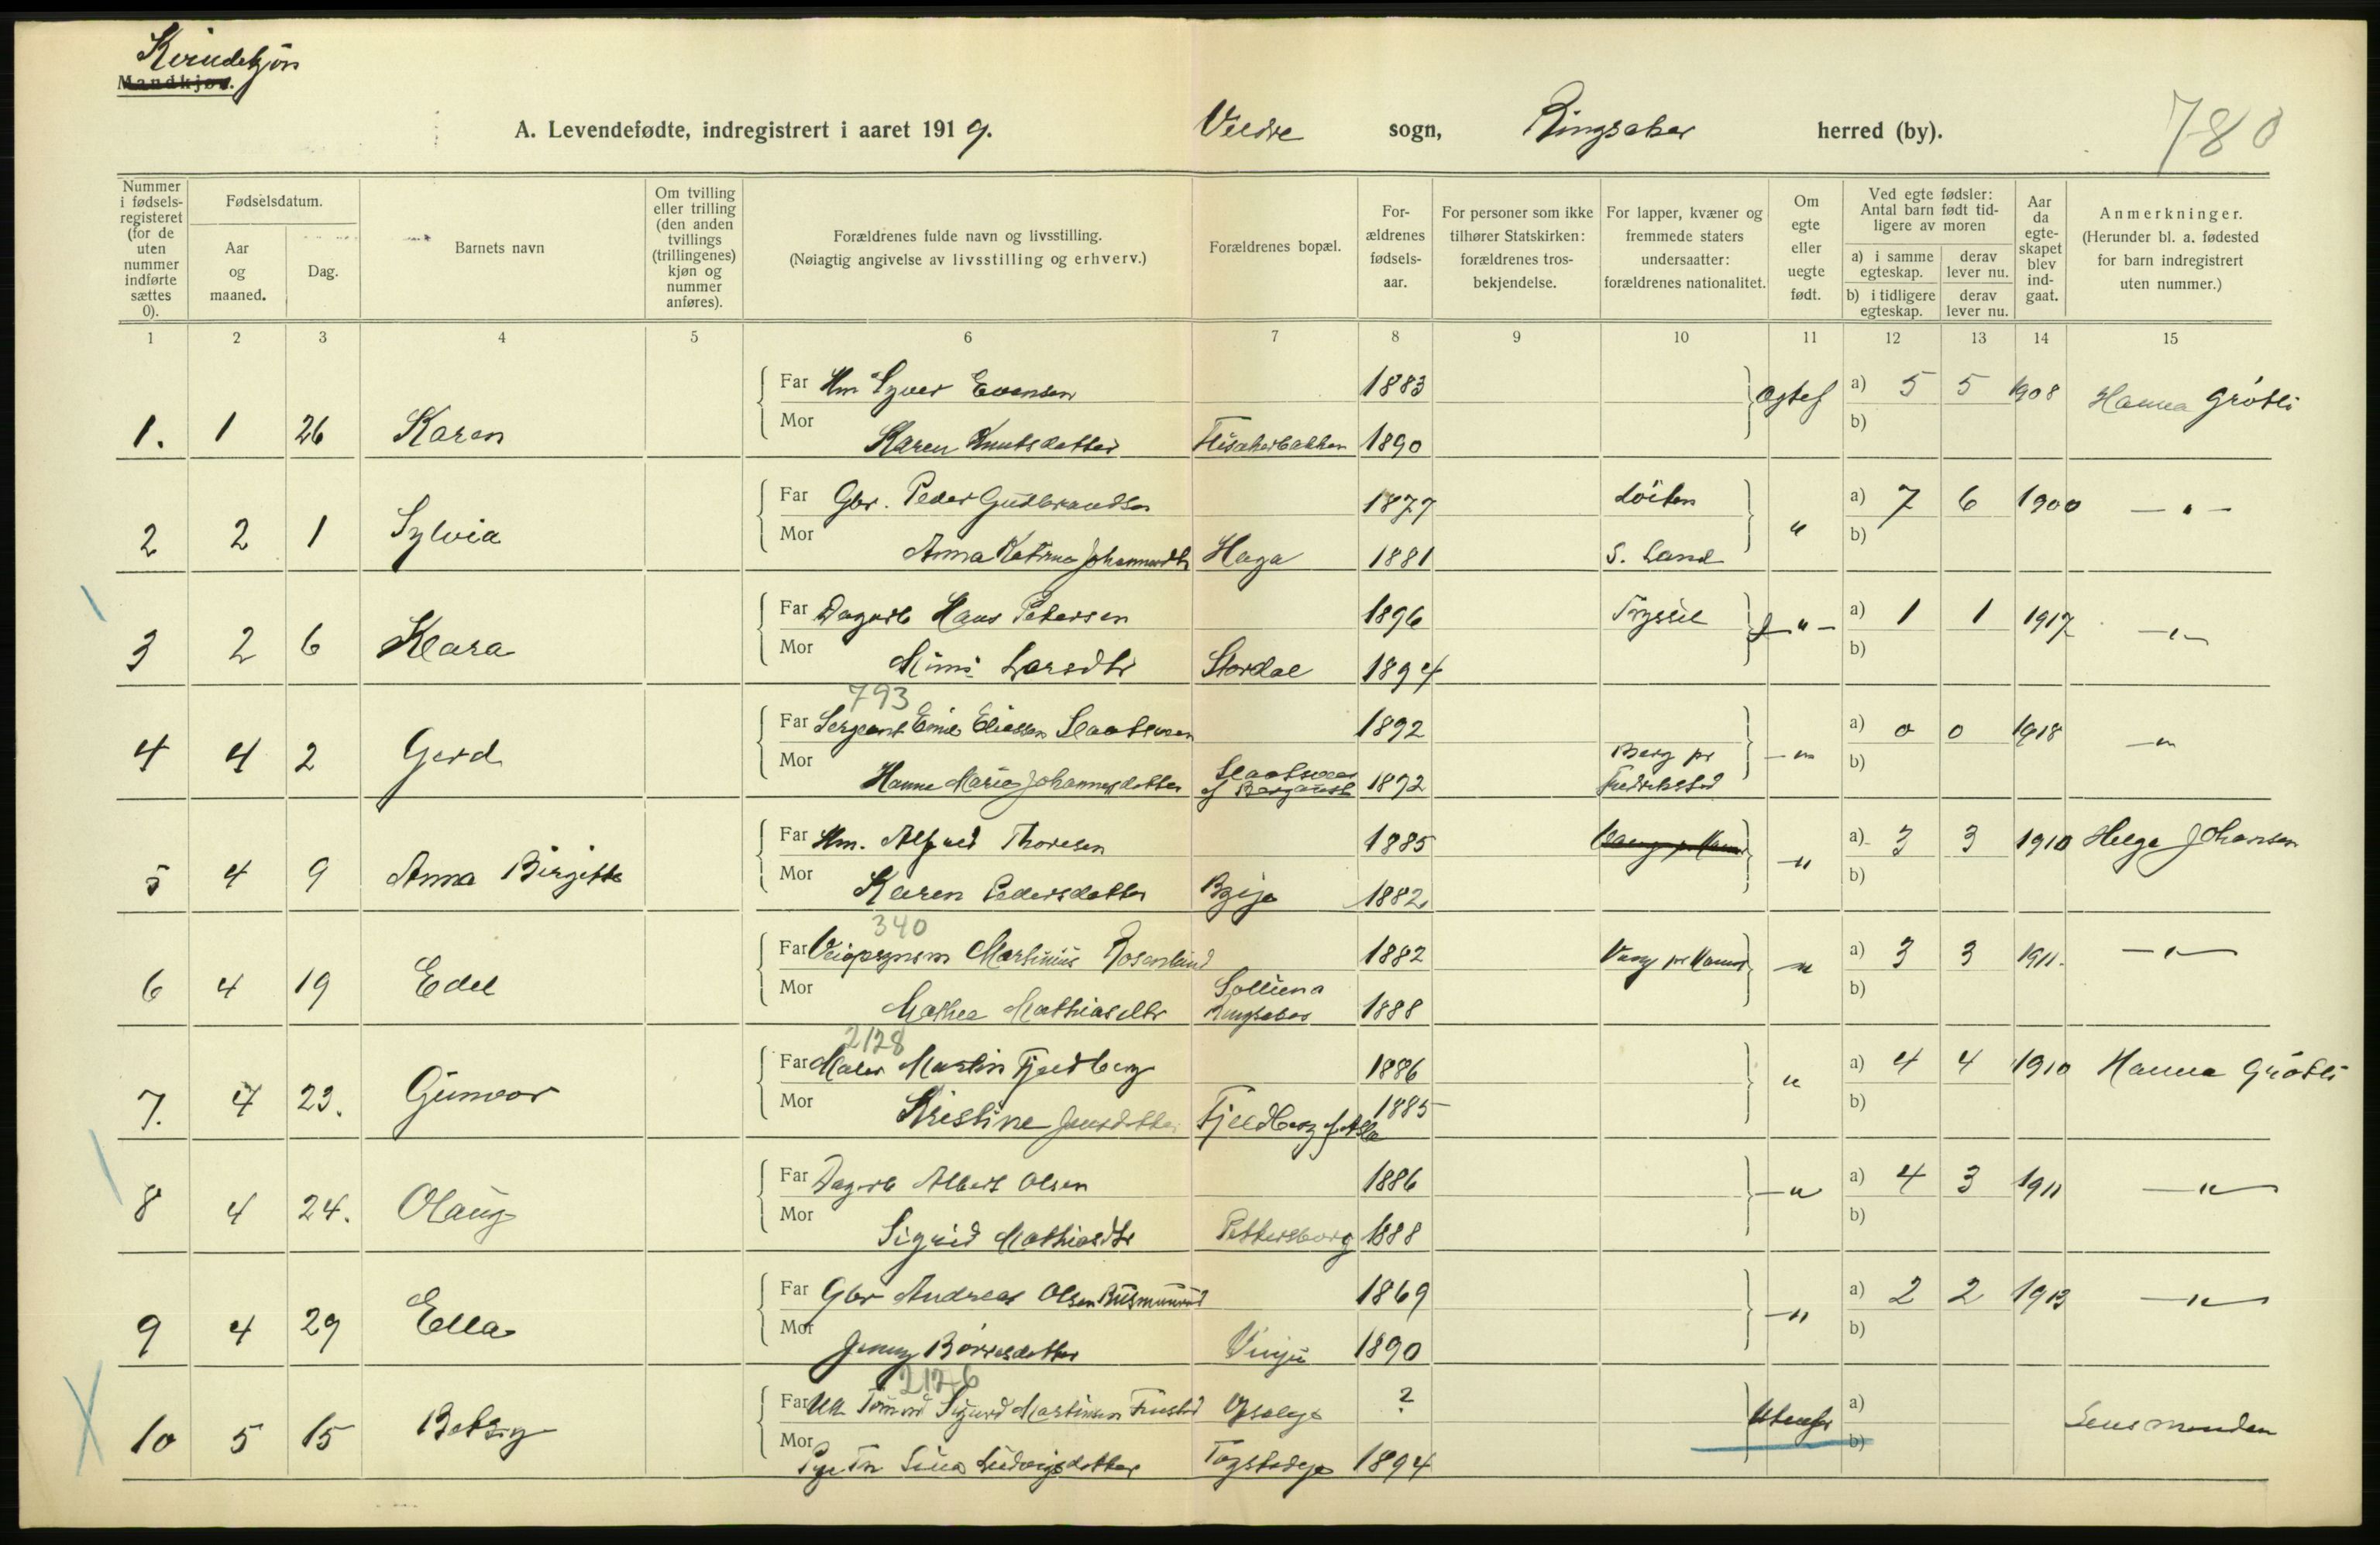 Kvindekjøn
Mandkjøn.
A. Levendefødte, indregistrert i aaret 1919. Veldre sogn, Ringsaker herred (by). 780
Nummer i fødsels-registeret (for de uten nummer indførte sættes 0).
Fødselsdatum.
Aar og maaned.
Dag.
Barnets navn
Om tvilling eller trilling (den anden tvillings (trillingenes) kjøn og nummer anføres).
Forældrenes fulde navn og livsstilling.
(Nøiagtig angivelse av livsstilling og erhverv.)
Forældrenes bopæl.
For-ældrenes fødsels-aar.
For personer som ikke tilhører Statskirken: forældrenes tros-bekjendelse.
For lapper, kvæner og fremmede staters undersaatter: forældrenes nationalitet.
Om egte eller uegte født.
Ved egte fødsler: Antal barn født tid-ligere av moren
a) i samme egteskap. derav lever nu.
b) i tidligere egteskap. derav lever nu.
Aar da egte-skapet blev ind-gaat.
Anmerkninger.
(Herunder bl. a. fødested for barn indregistrert uten nummer.)
1 2 3 4 5 6 7 8 9 10 11 12 13 14 15
Far Hm Syver Evensen 1883 Egtef a) 5 5 1908 Hanna Grøtli
1. 1 26 Karen Mor Karen Knutsdatter Flisakerbakken 1890 b)
Far Gbr. Peder Gudbrandsen 1877 Löiten a) 7 6 1900 — " —
2 2 1 Sylvia Mor Anna Katrina Johannesdtr Haga 1881 S. Land " b)
Far Dagarb Hans Petersen 1896 Trysil — " — a) 1 1 1917 — " —
3 2 6 Klara Mor Mimi Larsdtr Stordal 1894 b)
793
Far Sergeant Emil Eliassen Slaatsveen 1892 a) 0 0 1918 — "
4 4 2 Gerd Mor Hanne Marie Johannesdatter Slaatsveen af Berg 1892 Berg pr Fredrikstad — " b)
Far Hm. Alfred Thoresen 1885 a) 3 3 1910 Helga Johansen
5 4 9 Anna Birgitte Mor Karen Pedersdatter 1882 — " b)
340
Far Martinius Rosenlund 1882 Vang pr Hamar — " a) 3 3 1911. — " —
6 4 19 Edel Mor Mathea Mathiasdtr Solliena Ringsaker 1888 b)
2128
Far Maler Martin Fjeldberg 1886 " a) 4 4 1910 Hanna Grøtli
7. 4 23. Gunvor Mor Kristine Jensdatter Fjeldberg 1885 b)
Far Dagarb Albert Olsen 1886 — " a) 4 3 1911 — " —
8 4 24. Olaug Mor Sigrid Mathiasdtr Pettersborg 1888 b)
Far Gbr Andreas Olsen 1869 — " a) 2 2 1913 — " —
9 4 29 Ella Mor Jenny Börresdatter 1890 b)
2126
Far Uk Tömmd Sigurd Martinsen ? Utenfor a) Lensmanden
10 5 15 Betsy Mor Lina Ludvigsdatter 1894 b)